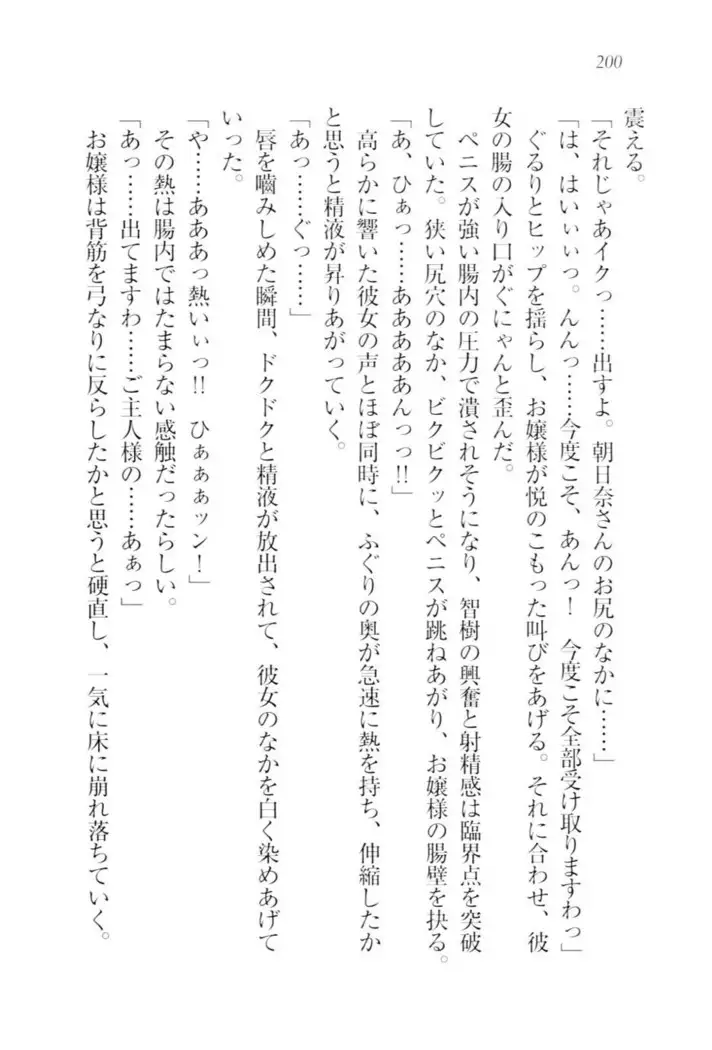 200
震える。
「それじゃあイクっ……出すよ。朝日奈さんのお尻のなかに……」
「は、はいぃぃっ。んんっ……今度こそ、あんっ！　今度こそ全部受け取りますわっ」
ぐるりとヒップを揺らし、お嬢様が悦のこもった叫びをあげる。それに合わせ、彼
女の腸の入り口がぐにゃんと歪んだ。
ペニスが強い腸内の圧力で潰されそうになり、智樹の興奮と射精感は臨界点を突破
していた。狭い尻穴のなか、ビクビクッとペニスが跳ねあがり、お嬢様の腸壁を抉る。
「あ、ひぁっ……あああああんっっ!!」
高らかに響いた彼女の声とほぼ同時に、ふぐりの奥が急速に熱を持ち、伸縮したか
と思うと精液が昇りあがっていく。
「あっ……ぐっ……」
唇を嚙みしめた瞬間、ドクドクと精液が放出されて、彼女のなかを白く染めあげて
いった。
「や……あああっ熱いぃっ!!　ひぁぁぁッン！」
その熱は腸内ではたまらない感触だったらしい。
「あっ……出てますわ……ご主人様の……あぁっ」
お嬢様は背筋を弓なりに反らしたかと思うと硬直し、一気に床に崩れ落ちていく。